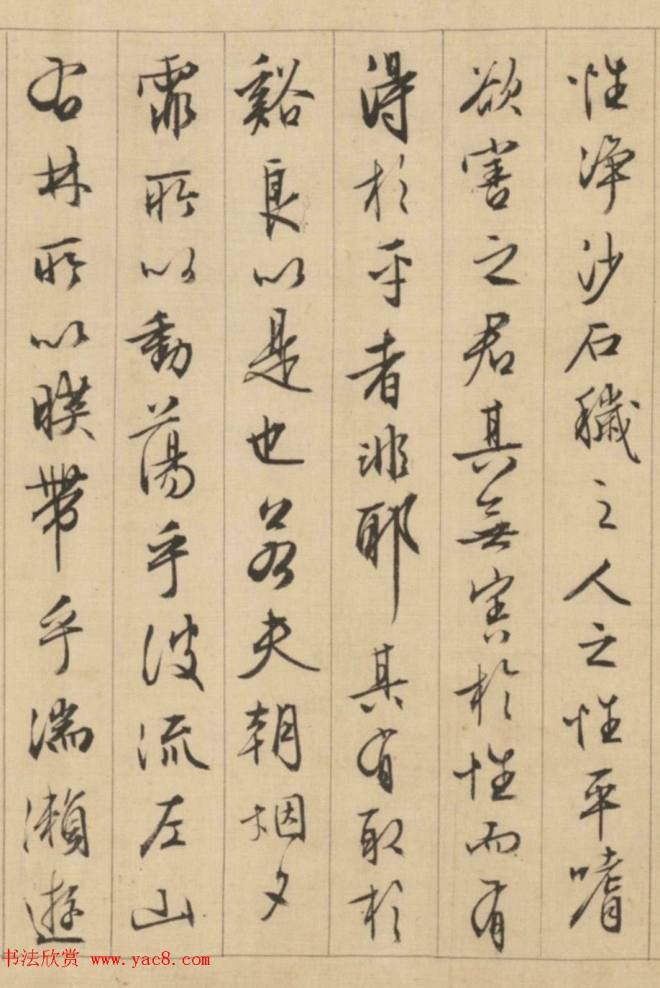 性浄沙石穢之人之性平嗜
欲害之君其無害於性而有
得於平者非耶其有取於
谿良以是也若夫朝烟夕
霏所以動蕩乎波流左山
右林所以暎帶乎湍瀨遊
书法欣赏 www.yac8.com